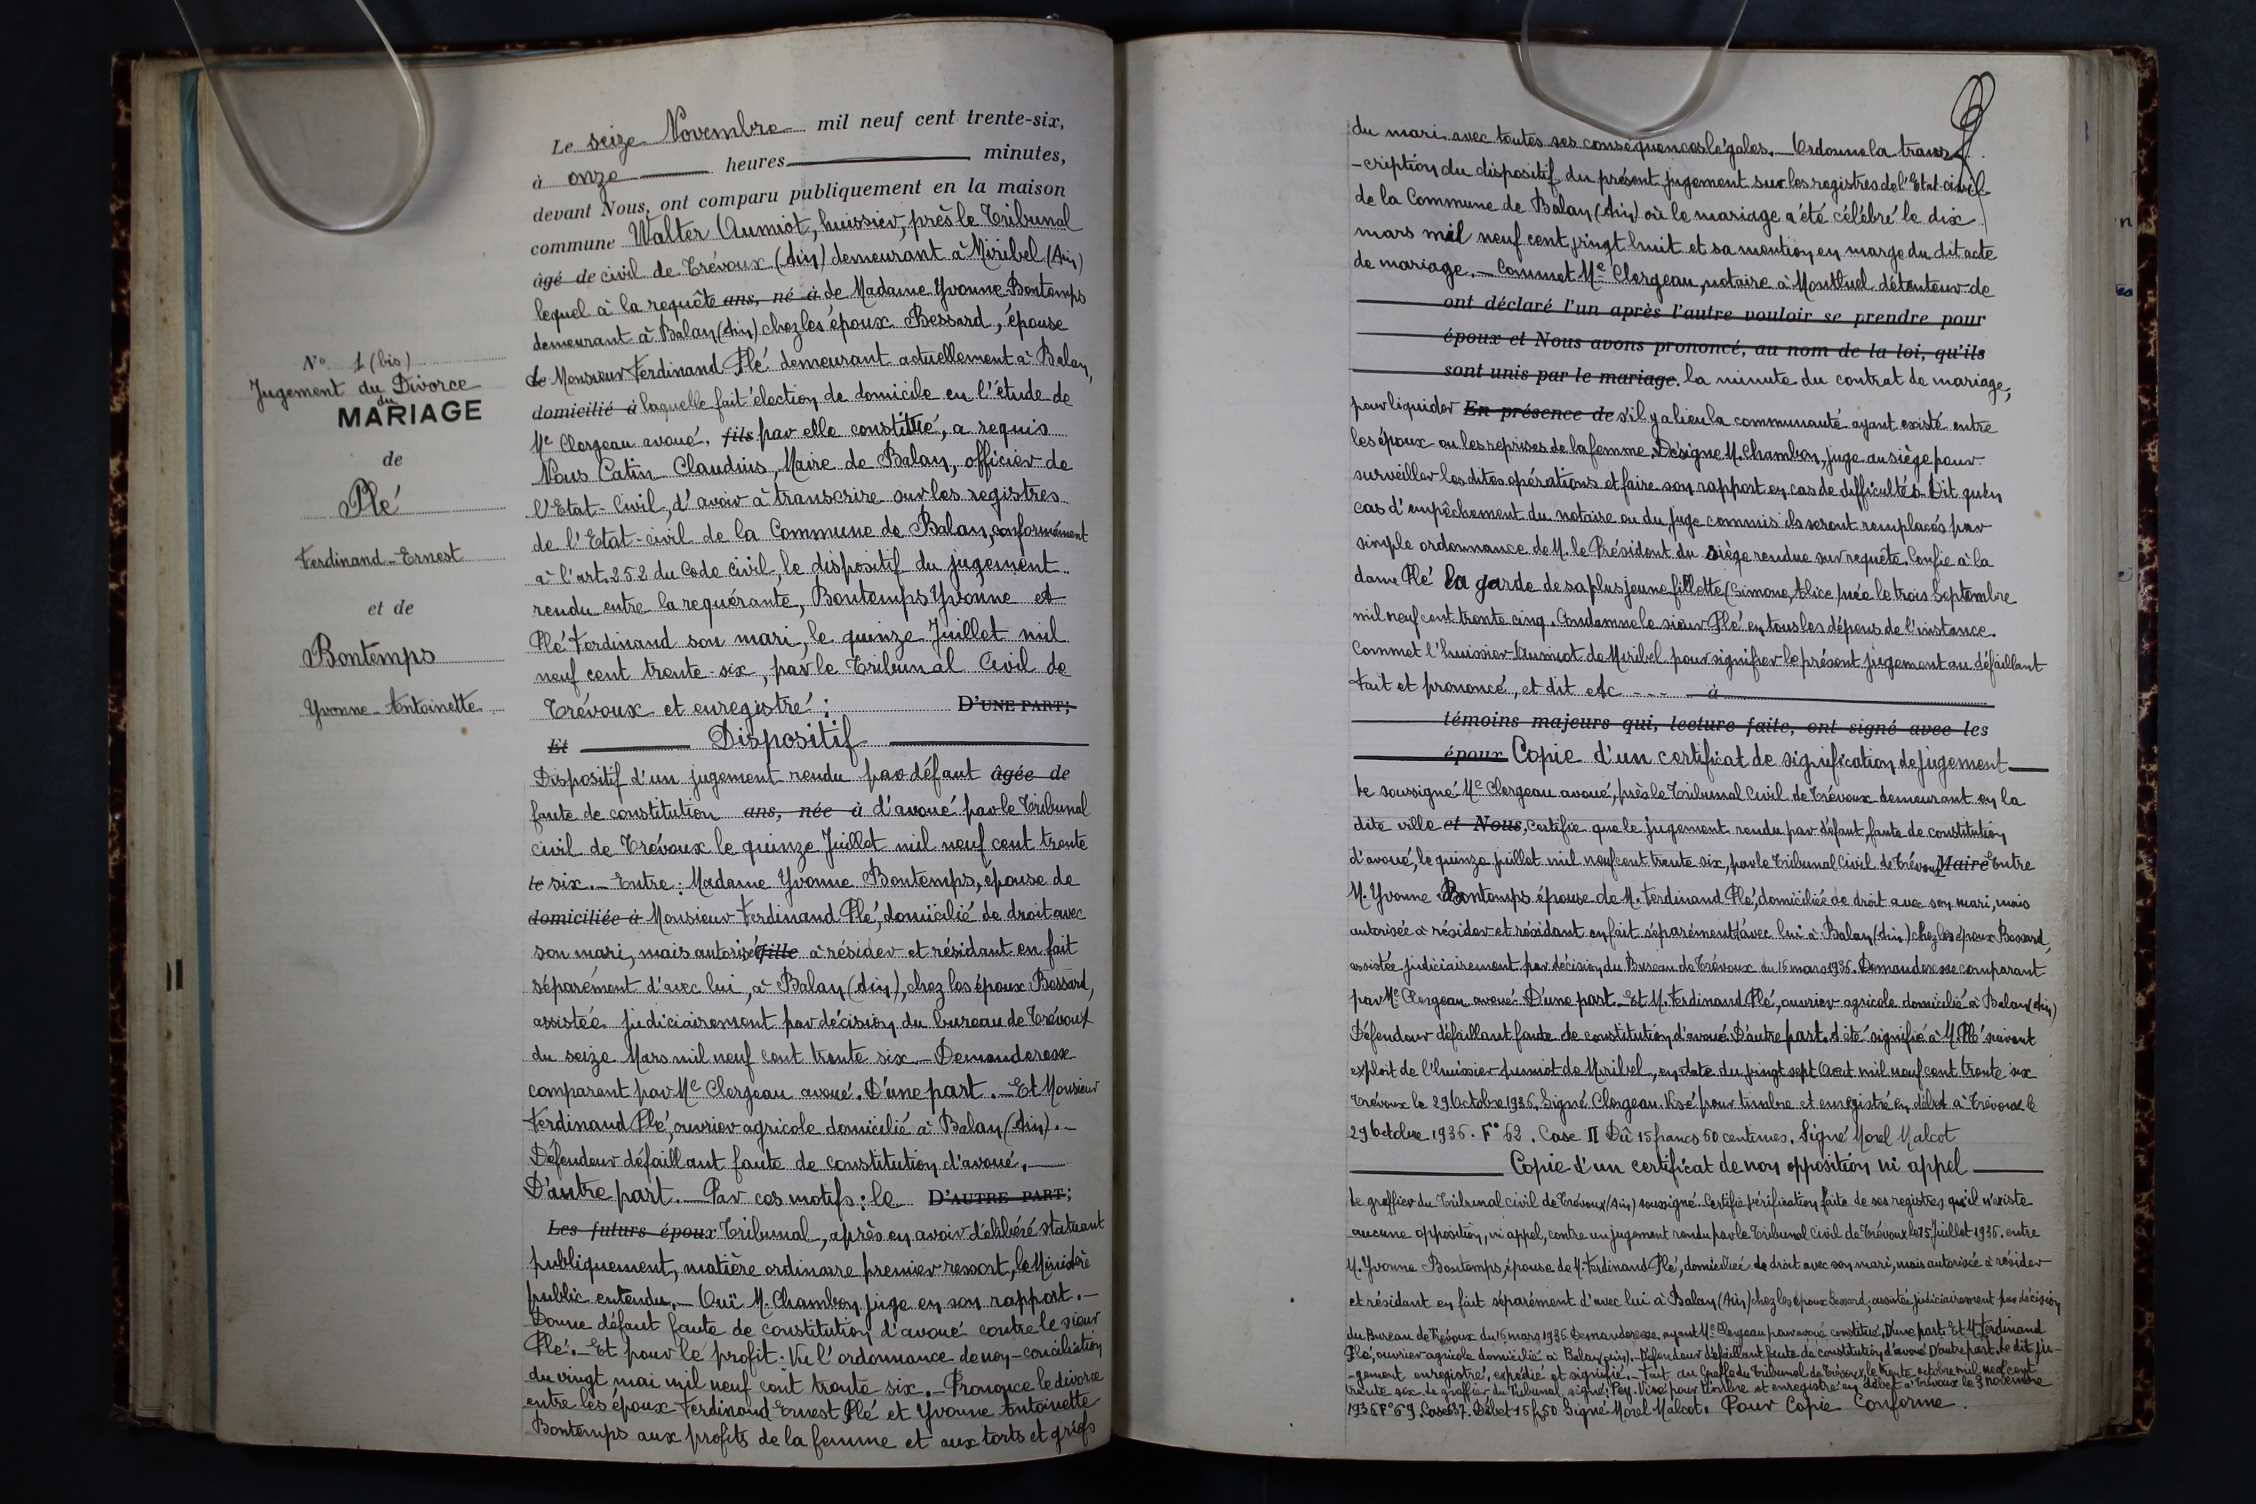 Le seize Novembre mil neuf cent trente-six,
à onze heures minutes,
devant Nous, ont comparu publiquement en la maison
commune Walter Aumiot, huissier, près le Tribunal
âgé de civil de Trévoux (Ain) demeurant à Miribel (Ain)
lequel à la requête ans, né à de Madame Yvonne Bontemps
demeurant à Balan (Ain) chez les époux Bessard, épouse
de Monsieur Ferdinand Plé demeurant actuellement à Balan,
domicilié à laquelle fait élection de domicile en l'étude de
Me Clergeau avoué. fils par elle constitué, a requis
Nous Catin Claudius, Maire de Balan, officier de
l'Etat-Civil, d'avoir à transcrire sur les registres
de l'Etat-civil de la Commune de Balan, conformément
à l'art. 252 du Code civil, le dispositif du jugement
rendu entre la requérante, Bontemps Yvonne et
Plé Ferdinand son mari, le quinze Juillet mil
neuf cent trente-six, par le Tribunal Civil de
Trévoux et enregistré : D'UNE PART;
Et Dispositif
Dispositif d'un jugement rendu par défaut âgée de
faute de constitution ans, née à d'avoué par le Tribunal
civil de Trévoux le quinze Juillet mil neuf cent trente
le six. - Entre : Madame Yvonne Bontemps, épouse de
domiciliée à Monsieur Ferdinand Plé, domicilié de droit avec
son mari, mais autorisée fille à résider et résidant en fait
séparément d'avec lui, à Balan (Ain), chez les époux Bessard,
assistée judiciairement par décision du bureau de Trévoux
du seize Mars mil neuf cent trente six - Demanderesse
comparent par Me Clergeau avoué. D'une part. - Et Monsieur
Ferdinand Plé, ouvrier agricole domicilié à Balan (Ain). -
Défendeur défaillant faute de constitution d'avoué.
D'autre part. - Par ces motifs : le D'AUTRE PART;
Les futurs époux Tribunal, après en avoir délibéré statuant
publiquement, matière ordinaire premier ressort, le Ministère
public entendu. - Ouï M. Chambon juge en son rapport. -
Donne défaut faute de constitution d'avoué contre le sieur
Plé. - Et pour le profit : Vu l'ordonnance de non-conciliation
du vingt mai mil neuf cent trente six. - Prononce le divorce
entre les époux Ferdinand Ernest Plé et Yvonne Antoinette
Bontemps aux profits de la femme et aux torts et griefs
No 1 (bis)
Jugement du Divorce
du
MARIAGE
de
Plé
Ferdinand-Ernest
et de
Bontemps
Yvonne-Antoinette
du mari avec toutes ses conséquences légales. - Ordonne la trans
-cription du dispositif du présent jugement sur les registres de l'Etat-civil
de la Commune de Balan (Ain) où le mariage a été célébré le dix
mars mil neuf cent vingt huit et sa mention en marge du dit acte
de mariage. - Commet Me Clergeau, notaire à Montluel détenteur de
ont déclaré l'un après l'autre vouloir se prendre pour
époux et Nous avons prononcé, au nom de la loi, qu'ils
sont unis par le mariage. la minute du contrat de mariage,
pour liquider En présence de s'il y a lieu la communauté ayant existé entre
les époux ou les reprises de la femme. Désigne M. Chambon, juge au siège pour
surveiller les dites opérations et faire son rapport en cas de difficultés. Dit qu'en
cas d'empêchement du notaire ou du Juge commis ils seront remplacés par
simple ordonnance de M. le Président du siège rendue sur requête. Confie à la
dame Plé la garde de sa plus jeune fillette (Simone, Alice) née le trois Septembre
mil neuf cent trente cinq. Condamne le sieur Plé en tous les dépens de l'instance.
Commet l'huissier Aumiot de Miribel pour signifier le présent jugement au défaillant
Fait et prononcé, et dit etc - - - à
témoins majeurs qui, lecture faite, ont signé avec les
époux Copie d'un certificat de signification de jugement
Le soussigné Me Clergeau avoué, près le Tribunal Civil de Trévoux demeurant en la
dite ville et Nous, certifie que le jugement rendu par défaut, faute de constitution
d'avoué, le quinze juillet mil neuf cent trente six, par le Tribunal Civil de Trévoux Maire Entre
M. Yvonne Bontemps épouse de M. Ferdinand Plé, domiciliée de droit avec son mari, mais
autorisée à résider et résidant en fait séparément d'avec lui à Balan (Ain) chez les époux Bessard,
assistée judiciairement par décision du Bureau de Trévoux du 16 mars 1936. Demanderesse comparant
par Me Clergeau avoué. D'une part. - Et M. Ferdinand Plé, ouvrier agricole domicilié à Balan (Ain)
Défendeur défaillant faute de constitution d'avoué D'autre part. A été signifié à M. Plé suivant
exploit de l'huissier Aumiot de Miribel, en date du vingt sept Aout mil neuf cent trente six
Trévoux le 29 Octobre 1936. Signé Clergeau. Visé pour timbre et enregistré en débet à Trévoux le
29 Octobre 1936. F° 62. Case II Dû 15 francs 50 centimes. Signé Morel Malcot
Copie d'un certificat de non opposition ni appel
Le greffier du Tribunal civil de Trévoux (Ain) soussigné. Certifie vérification faite de ses registres qu'il n'existe
aucune opposition, ni appel, contre un jugement rendu par le Tribunal Civil de Trévoux le 15 Juillet 1936. entre
M. Yvonne Bontemps, épouse de M. Ferdinand Plé, domiciliée de droit avec son mari, mais autorisée à résider
et résidant en fait séparément d'avec lui à Balan (Ain) chez les époux Bessard, assistée judiciairement par décision
du Bureau de Trévoux du 16 mars 1936 Demanderesse ayant Me Clergeau pour avoué constitué, D'une part. Et M. Ferdinand
Plé, ouvrier agricole domicilié à Balan (Ain). - Défendeur défaillant faute de constitution d'avoué D'autre part. Le dit ju-
-gement enregistré, expédié et signifié. - Fait au Greffe du Tribunal de Trévoux, le trente octobre mil neuf cent
trente six. Le greffier du Tribunal signé : Pey. Visé pour timbre et enregistré en débet à Trévoux le 3 novembre
1936 F° 69. Case 637. Débet 15 f, 50 Signé Morel Malcot. Pour Copie Conforme.